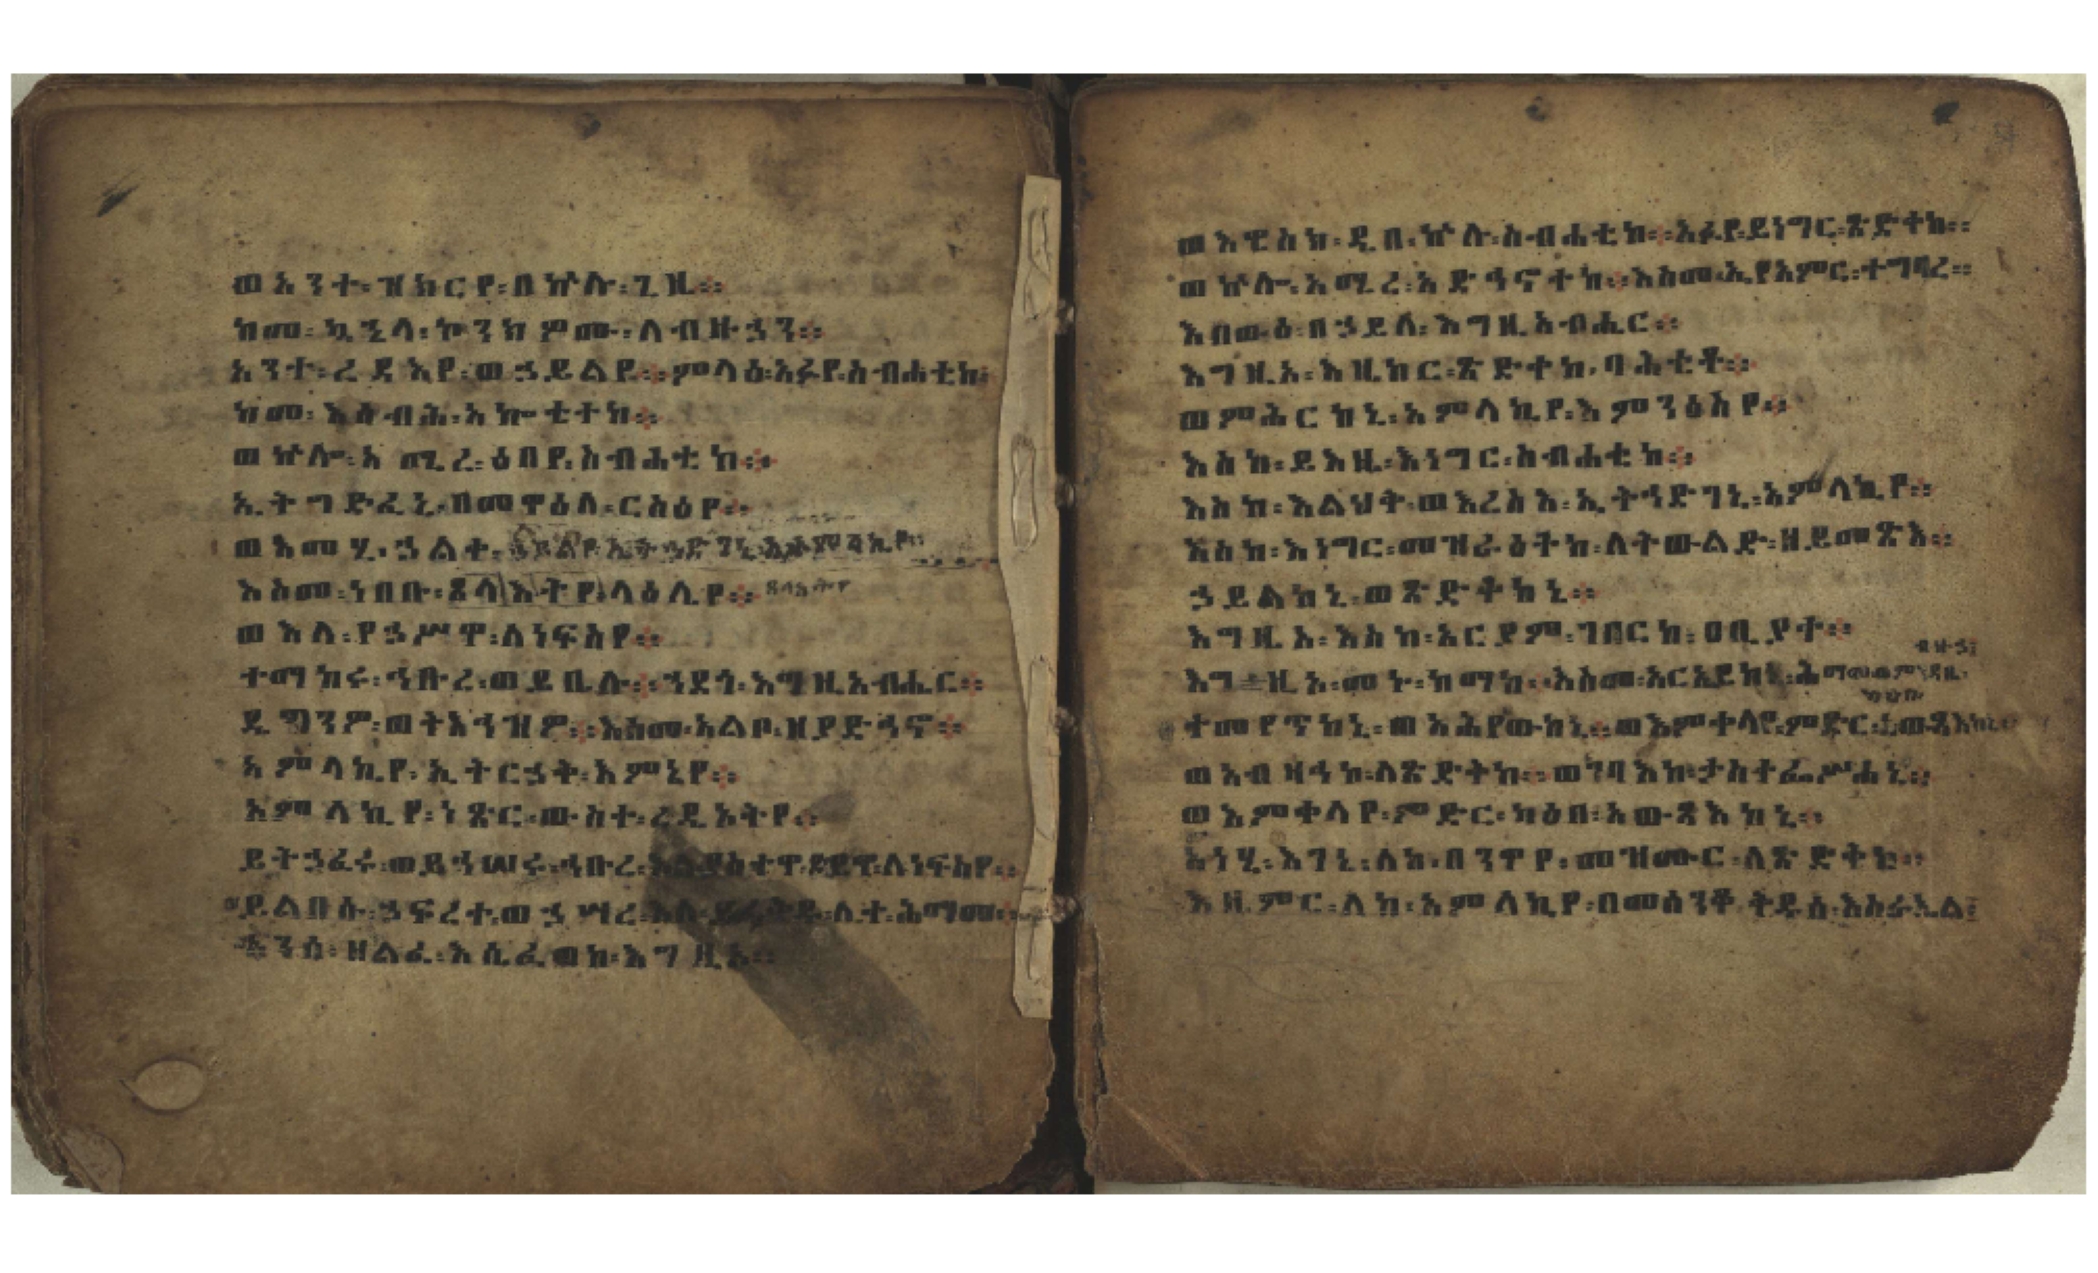 ወአንተ፡ዝክርየ፡በኵሉ፡ጊዜ።
ከመ፡ኳኂላ፡ኮንክዎሙ፡ለብዙኃን።
አንተ፡ረዳእየ፡ወኃይልየ።ምላዕ፡አፉየ፡ስብሐቲከ፡
ከመ፡እሴብሕ፡አኰቴተከ።
ወኵሎ፡አሚረ፡ዕበየ፡ስብሐቲከ።
ኢትግድፈኒ፡በመዋዕለ፡ርስዕየ።
ወአመሂ፡ኃልቀ፡ኃይልየ፡ኢትኃድገኒ፡አምላኪየ።
እስመ፡ነበቡ፡ጸላእትየ፡ላዕሌየ። ጸላእትየ
ወእለ፡የኃሥዋ፡ለነፍስየ።
ተማከሩ፡ኅቡረ፡ወይቤሉ።ኀደጎ፡እግዚአብሔር።
ዴግንዎ፡ወትእኅዝዎ።እስመ፡አልቦ፡ዘያድኅኖ።
አምላኪየ፡ኢትርኃቅ፡እምኔየ።
አምላኪየ፡ነጽር፡ውስተ፡ረዲኦትየ።
ይትኃፈሩ፡ወይኀሠሩ፡ኅቡረ፡እለ፡ያስተዋድይዋ፡ለነፍስየ።
ይልበሱ፡ኃፍረተ፡ወኃሣረ፡እለ፡ይፈቅዱ፡ሊተ፡ሕማመ።
አንሰ፡ዘልፈ፡እሴፈወከ፡እግዚኦ።
ወእዌስክ፡ዲበ፡ኵሉ፡ስብሐቲከ።አፉየ፡ይነግር፡ጽድቀከ።
ወኵሎ፡አሚረ፡አድኅኖተከ።እስመ፡ኢየአምር፡ተግባረ።
እበውዕ፡በኃይለ፡እግዚአብሔር።
እግዚኦ፡እዜከር፡ጽድቀከ፡ባሕቲቶ።
ወምሕርከኒ፡አምላኪየ፡እምንዕስየ።
እስከ፡ይእዜ፡እነግር፡ስብሐቲከ።
እስከ፡እልህቅ፡ወእረስእ፡ኢትኅድገኒ፡አምላኪየ።
እስከ፡እነግር፡መዝራዕትከ፡ለትውልድ፡ዘይመጽእ።
ኃይልከኒ፡ወጽድቅከኒ።
እግዚኦ፡እስከ፡አርያም፡ገበርከ፡ዐቢያተ።
ብዙኃ፡
እግዚኦ፡መኑ፡ከማከ።እስመ፡አርአይከኒ፡ሕማመ
ተመየጥከኒ፡ወአሕየውከኒ።ወእምቀላየ፡ምድር፡አውጻእከኒ።
ወአብዛኅከ፡ለጽድቅከ።ወገባእከ፡ታስተፌሥሐኒ።
ወእምቀላየ፡ምድር፡ካዕበ፡አውጻእከኒ።
አነሂ፡እገኒ፡ለከ፡በንዋየ፡መዝሙር፡ለጽድቅከ።
እዜምር፡ለከ፡አምላኪየ፡በመሰንቆ፡ቅዱሰ፡እስራኤል፡